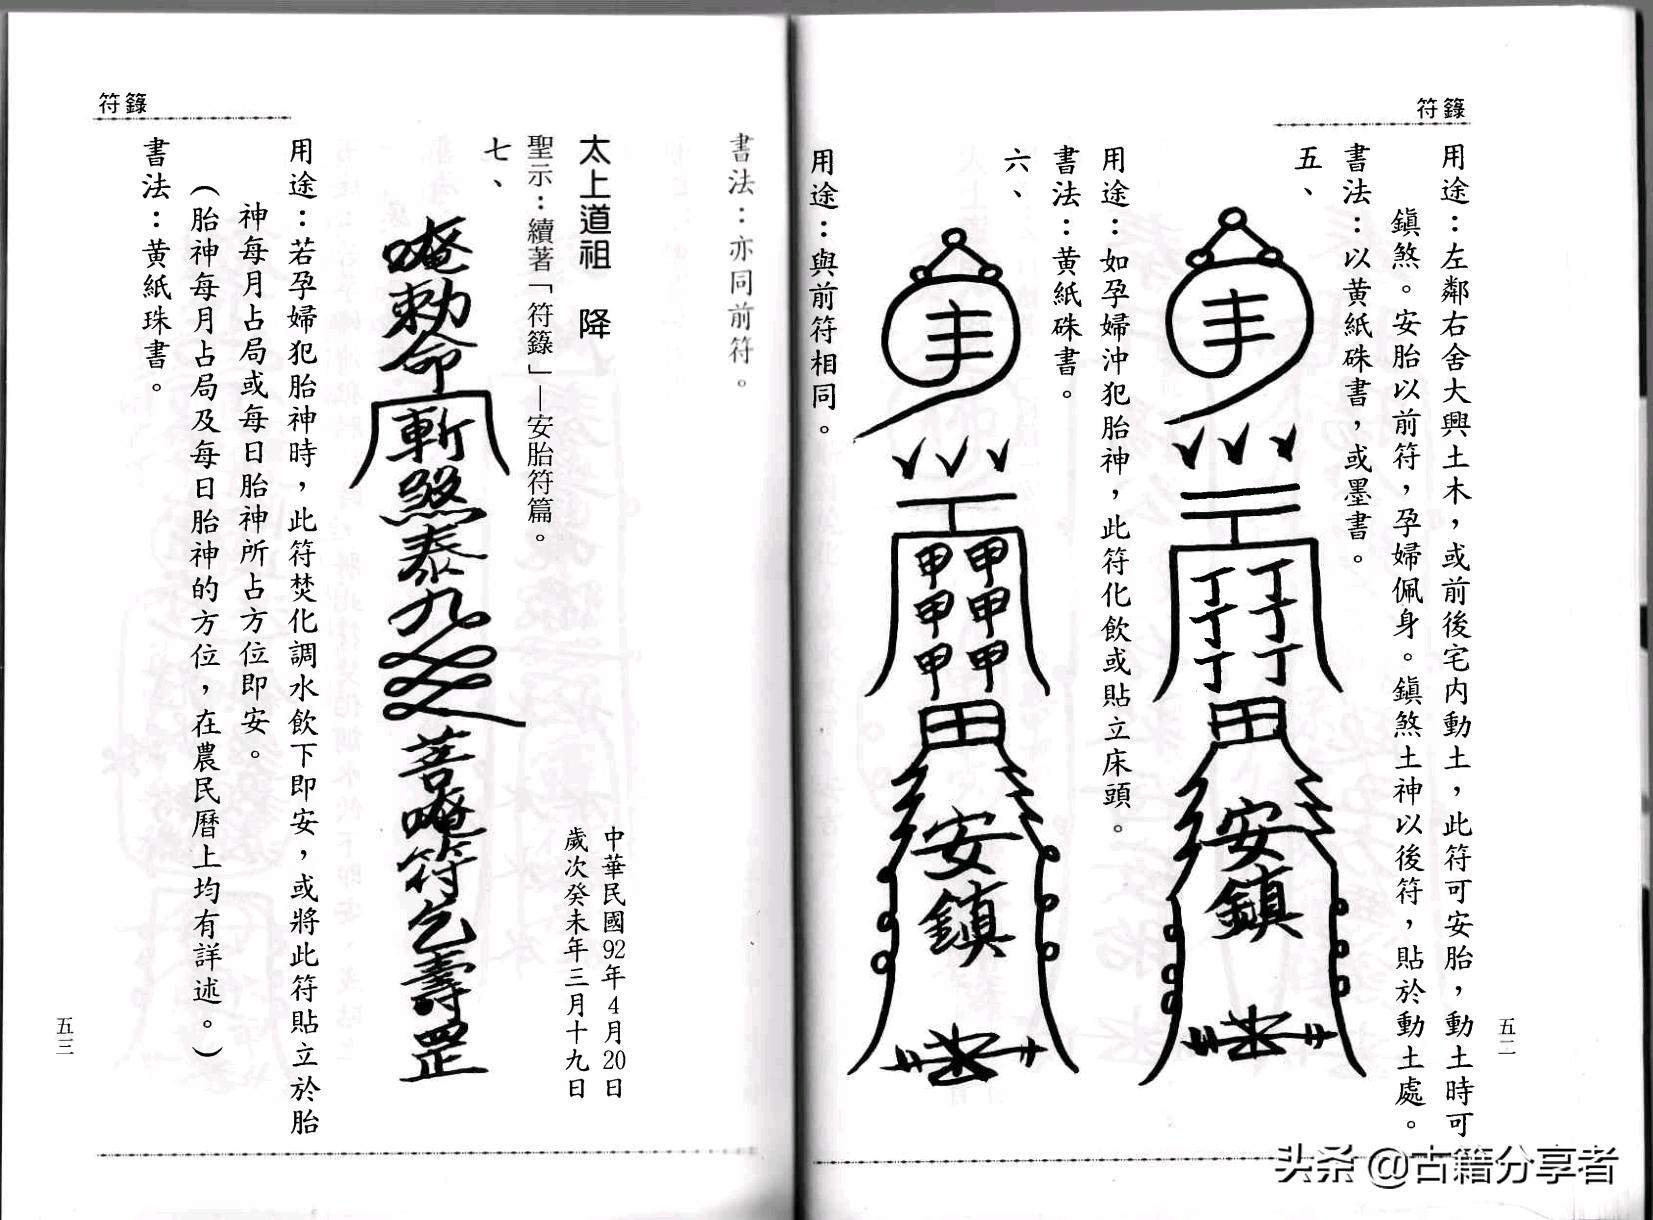 符錄
用途：左鄰右舍大興土木，或前後宅內動土，此符可安胎，動土時可
鎮煞。安胎以前符，孕婦佩身。鎮煞土神以後符，貼於動土處。
書法：以黃紙硃書，或墨書。
五、
丁丁
丁丁
丁丁
安鎮
用途：如孕婦沖犯胎神，此符化飲或貼立床頭。
書法：黃紙硃書。
六、
甲甲
甲甲
甲甲
安鎮
用途：與前符相同。
五二
符錄
書法：亦同前符。
太上道祖 降
中華民國92年4月20日
歲次癸未年三月十九日
聖示：續著「符錄」—安胎符篇。
七、
唵勅命斬煞泰九
菩唵符乞壽罡
用途：若孕婦犯胎神時，此符焚化調水飲下即安，或將此符貼立於胎
神每月占局或每日胎神所占方位即安。
（胎神每月占局及每日胎神的方位，在農民曆上均有詳述。）
書法：黃紙珠書。
五三
头条 @古籍分享者